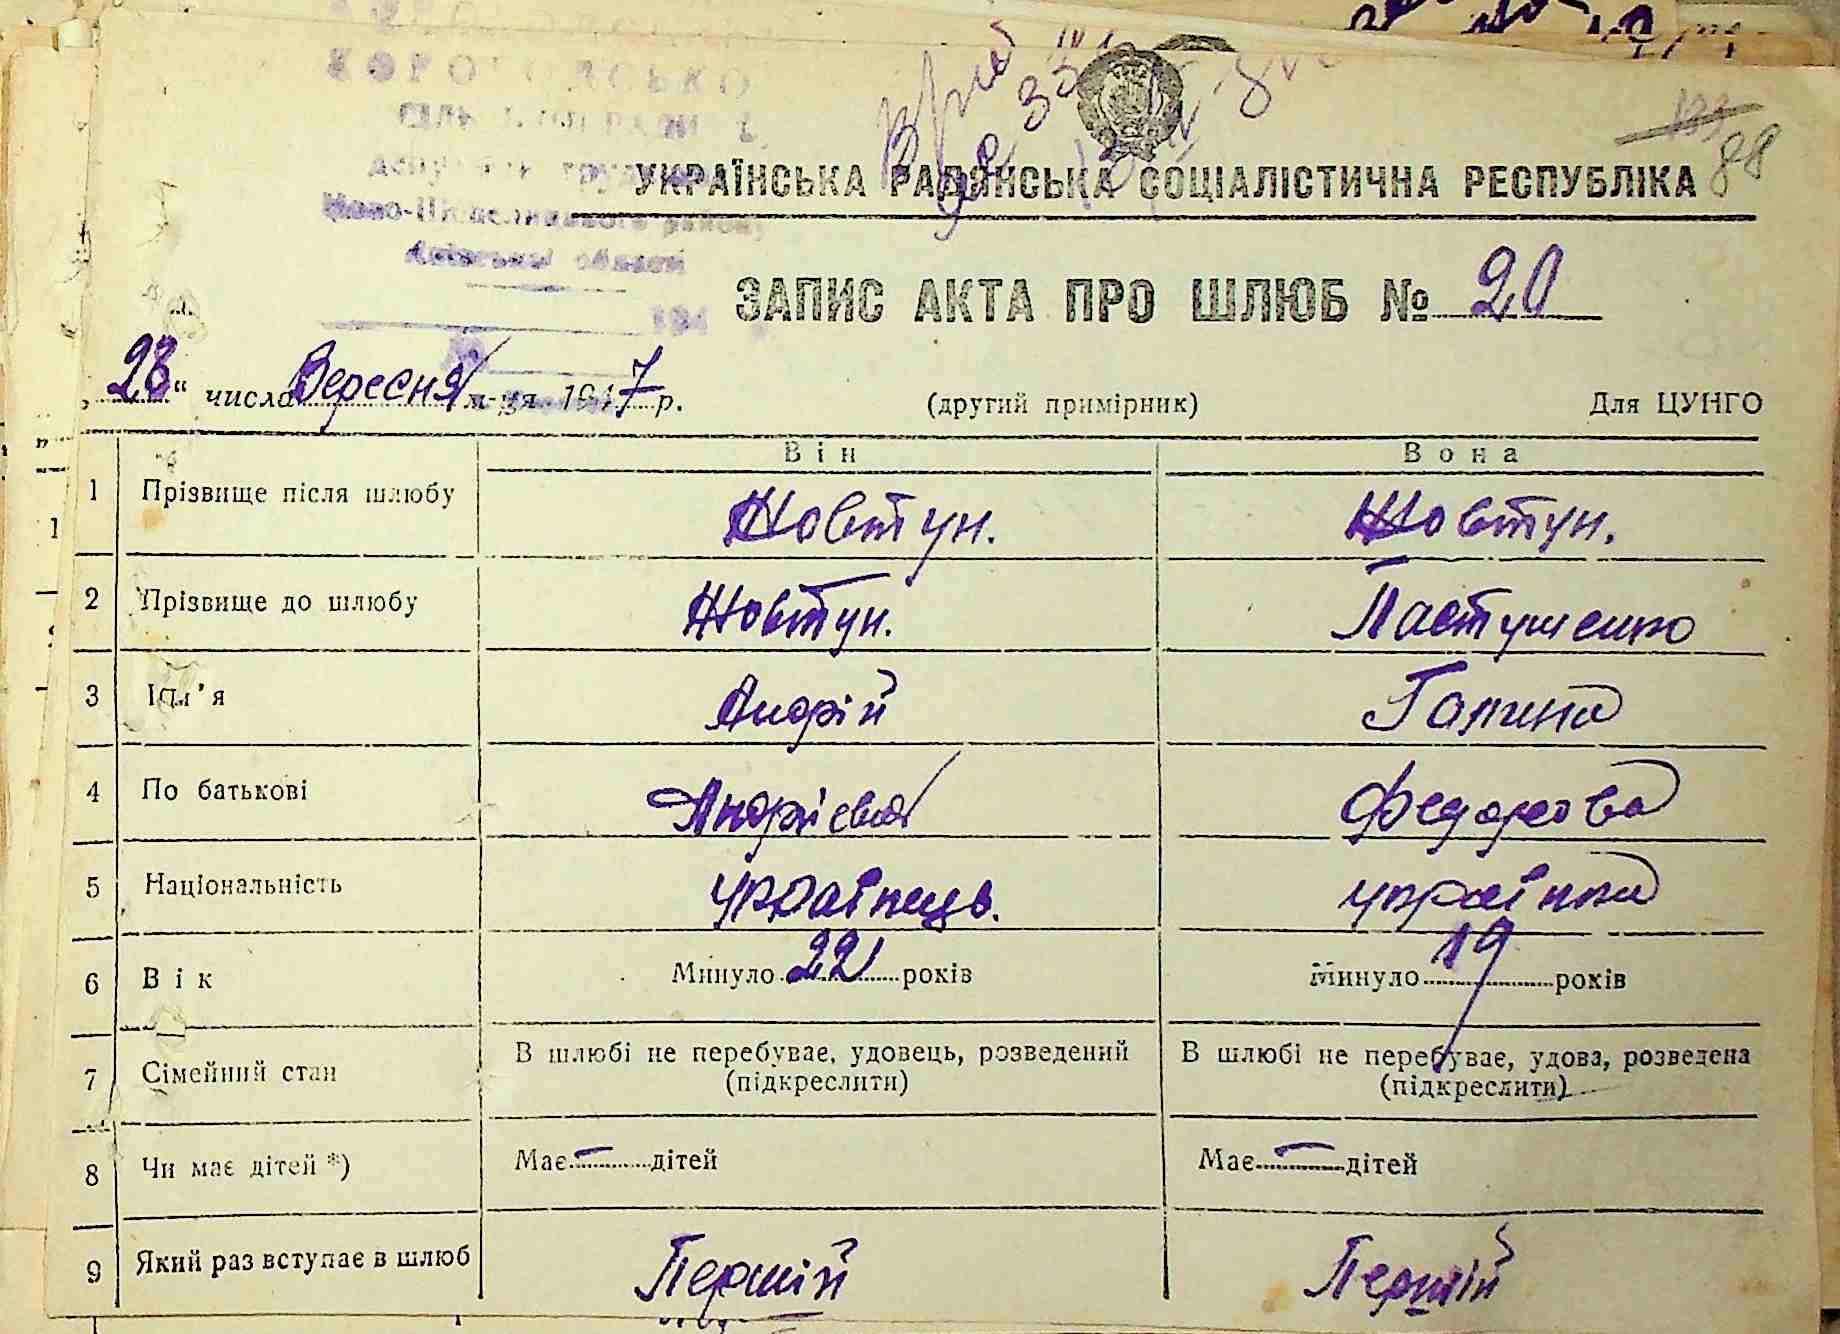 УКРАЇНСЬКА РАДЯНСЬКА СОЦІАЛІСТИЧНА РЕСПУБЛІКА
88
ЗАПИС АКТА ПРО ШЛЮБ № 20
28 " числа Вересня м-ця 1947 р. (другий примірник) Для ЦУНГО
Він Вона
1 Прізвище після шлюбу Жовтун. Жовтун.
2 Прізвище до шлюбу Жовтун. Пастушенко
3 Ім'я Андрій Галина
4 По батькові Андрієвич Федорова
5 Національність українець. українка
6 Вік Минуло 22 років Минуло 19 років
7 Сімейний стан В шлюбі не перебуває, удовець, розведений (підкреслити) В шлюбі не перебуває, удова, розведена (підкреслити)
8 Чи має дітей *) Має — дітей Має — дітей
9 Який раз вступає в шлюб Первий Первий